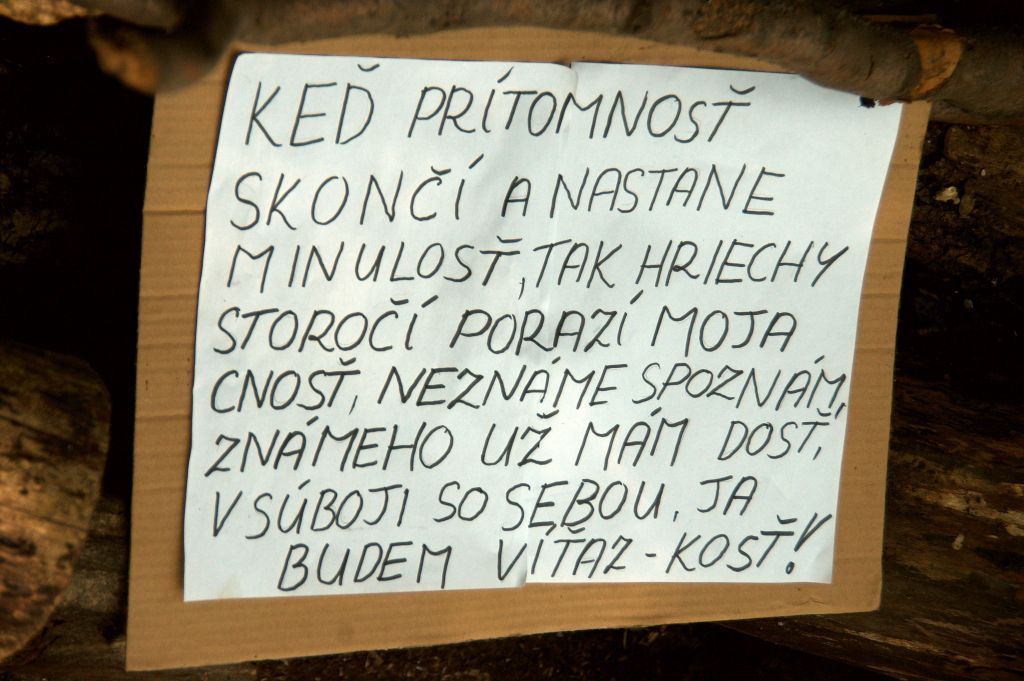 KEĎ PRÍTOMNOSŤ
SKONČÍ A NASTANE
MINULOSŤ, TAK HRIECHY
STOROČÍ PORAZÍ MOJA
CNOSŤ, NEZNÁME SPOZNÁM,
ZNÁMEHO UŽ MÁM DOSŤ,
V SÚBOJI SO SEBOU, JA
BUDEM VÍŤAZ - KOSŤ!